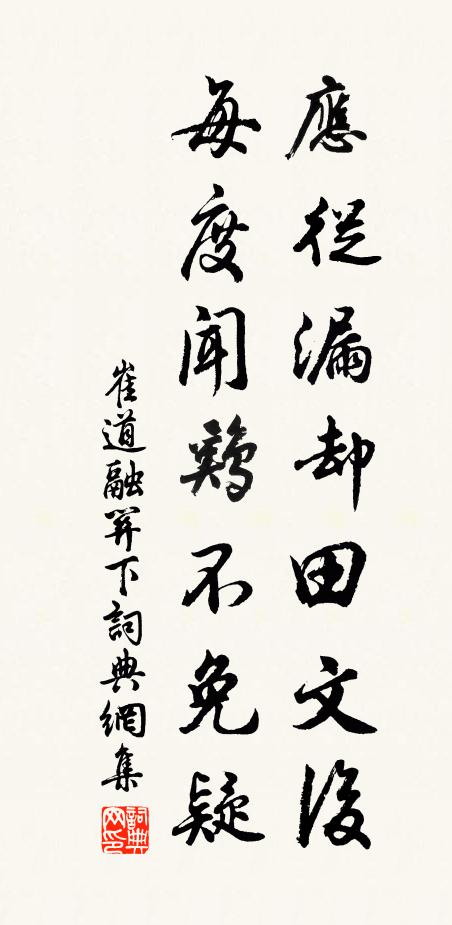 應從漏却田文後
每度聞鷄不免疑
崔道融關下詞典網集
詞典网印